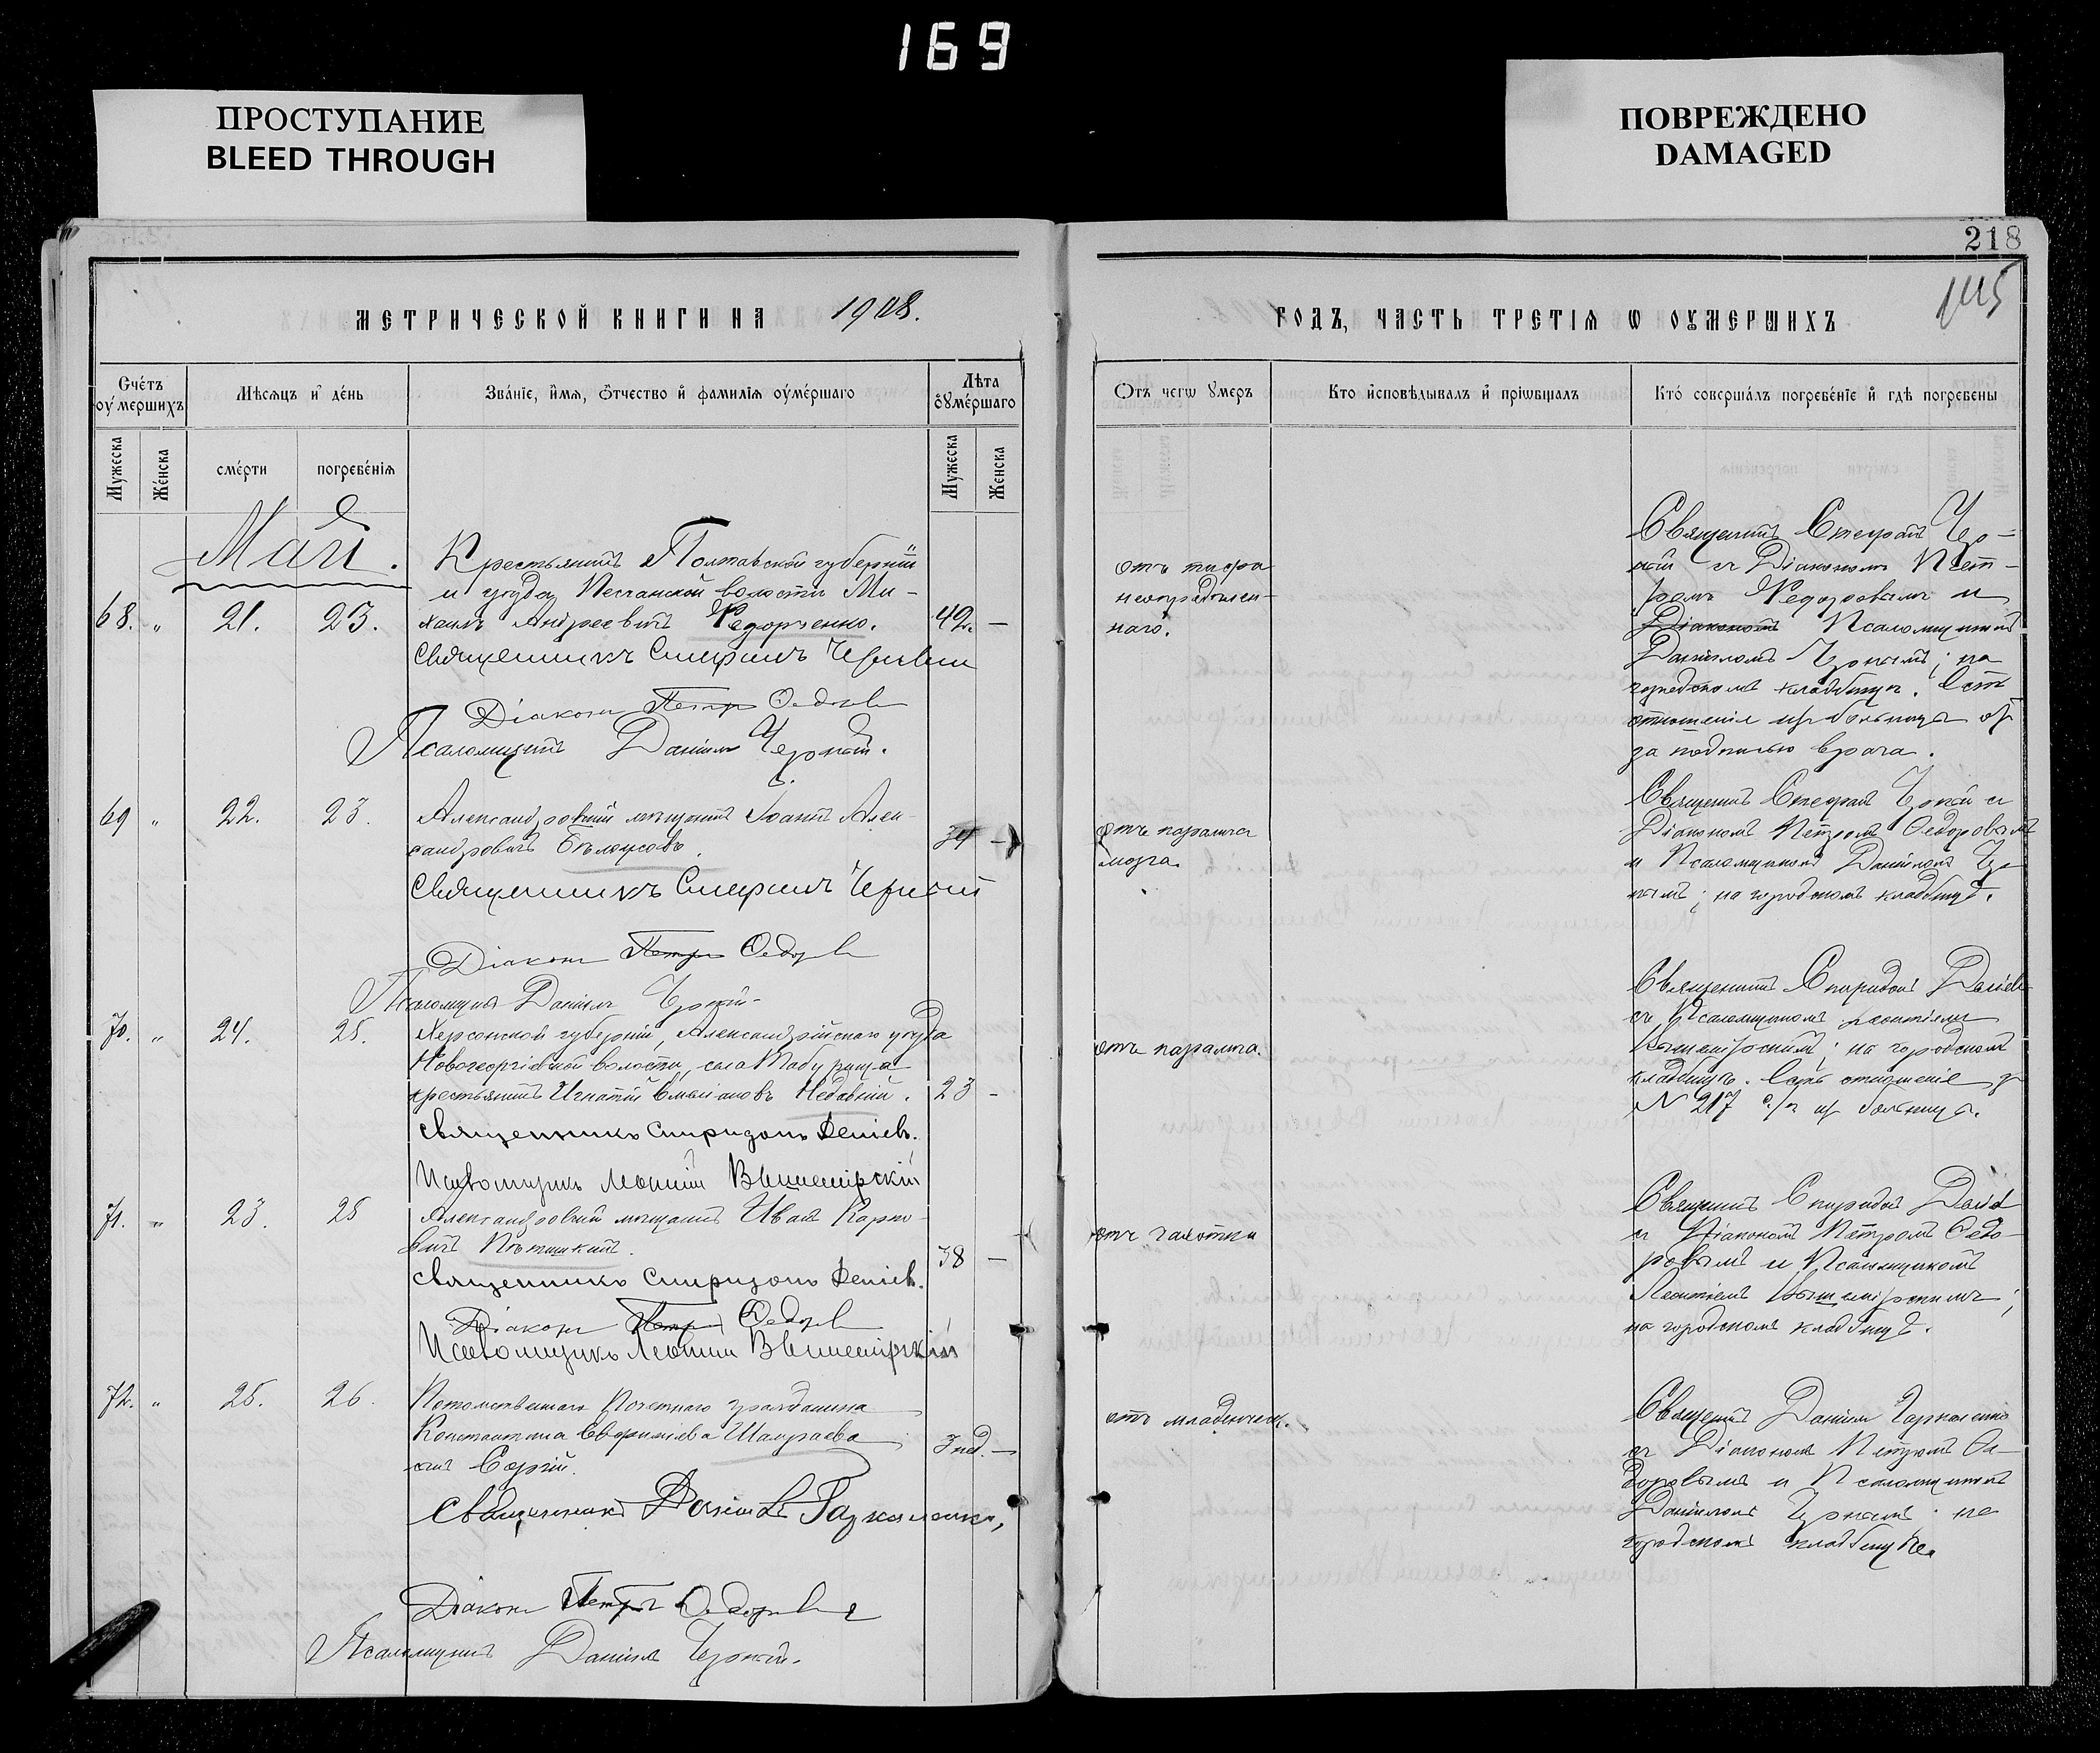 169
ПРОСТУПАНИЕ
BLEED THROUGH
ПОВРЕЖДЕНО
DAMAGED
218
МЕТРИЧЕСКОЙ КНИГИ НА 1908.
Счетъ оумершихъ
Мѣсяцъ и день
Званіе, имя, отчество и фамилія оумершаго
Лѣта оумершаго
Мужеска
Женска
смерти
погребенія
Мужеска
Женска
Май.
Крестьянинъ Полтавской губерніи
и уѣзда Песчанской волости Ми-
68. " 21. 23. хаилъ Андреевичъ Федорченко. 49 —
Священникъ Стефанъ Черный
Діаконъ Петръ Федоровъ
Псаломщикъ Даніилъ Черный.
69 " 22. 23. Александровскій мѣщанинъ Іоаннъ Алек-
сандровичъ Бѣлоусовъ. 34 —
Священникъ Стефанъ Черный
Діаконъ Петръ Федоровъ
Псаломщикъ Даніилъ Черный
70. " 24. 25. Херсонской губерніи, Александрійскаго уѣзда
Новогеоргіевской волости, села Табурища
крестьянинъ Игнатій Емельяновъ Недавній. 23 -
Священникъ Спиридонъ Деніевъ.
Псаломщикъ Леонтій Вышемірскій
71. " 23. 25 Александровскій мѣщанинъ Иванъ Карпо-
вичъ 38 —
Священникъ Спиридонъ Деніевъ.
Діаконъ Петръ Федоровъ
Псаломщикъ Леонтій Вышемірскій
72. " 25. 26. Потомственнаго Почетнаго гражданина
Константина 3 нед. —
сынъ Сергій.
Священникъ Даніилъ Гаркаленко,
Діаконъ Петръ Федоровъ
Псаломщикъ Даніилъ Черный.
ГОДЪ, ЧАСТЬ ТРЕТІЯ Ѡ ОУМЕРШИХЪ
Отъ чегѡ умеръ
Кто исповѣдывалъ и пріѡбщалъ
Кто совершалъ погребеніе и гдѣ погребены
отъ тифа
неопредѣлен-
наго.
Священникъ Стефанъ Чер-
ный съ Діакономъ Пет-
ромъ Федоровымъ и
Діакономъ Псаломщикомъ
Даніиломъ Чернымъ; на
городскомъ кладбищѣ. Есть
отношеніе изъ больницы
за подписью врача.
отъ паралича
мозга.
Священникъ Стефанъ Черный съ
Діакономъ Петромъ Федоровымъ
и Псаломщикомъ Даніиломъ Чер-
нымъ; на городскомъ кладбищѣ.
отъ паралича.
Священникъ Спиридонъ Деніевъ
съ Псаломщикомъ Леонтіемъ
Вышемірскимъ; на городскомъ
кладбищѣ. Есть отношеніе за
№ 217 изъ больницы.
отъ чахотки
Священникъ Спиридонъ Деніевъ
съ Діакономъ Петромъ Федо-
ровымъ и Псаломщикомъ
Леонтіемъ Вышемірскимъ;
на городскомъ кладбищѣ.
отъ младенческ.
Священникъ Даніилъ Гаркаленко
съ Діакономъ Петромъ Фе-
доровымъ и Псаломщикомъ
Даніиломъ Чернымъ на
городскомъ кладбищѣ.